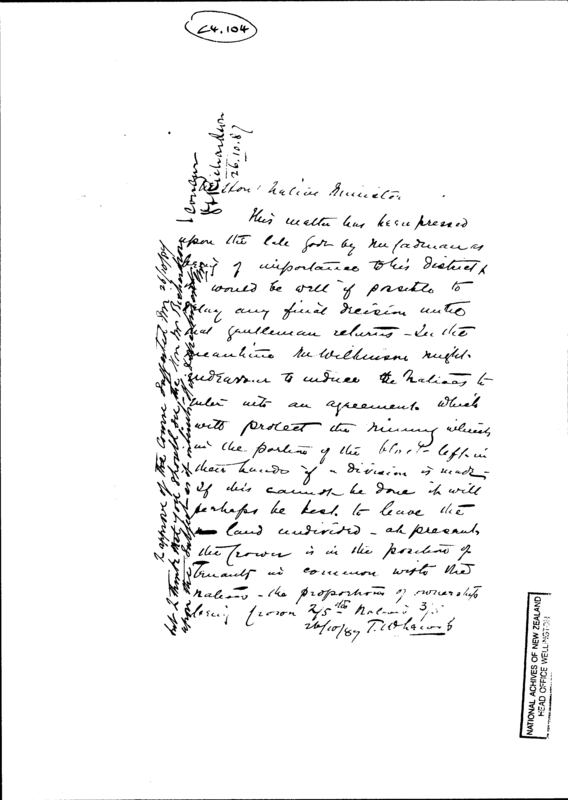 C4.104
The Hon: Native Minister
This matter has been pressed
upon the late Govt by Mr Cadman as
being of importance to his district &
it would be well if possible to
delay any final decision until
that gentleman returns - In the
meantime Mr Wilkinson might
endeavour to induce the Natives to
enter into an agreement which
will protect the mining
in the portion of the block left in
their hands if a division is made -
If this cannot be done it will
perhaps be best to leave the
land undivided - at present
the Crown is in the position of
tenants in common with the
natives - the proportions of ownership
being Crown 2/5ths Natives 3/5
26/10/87 T.W.
I approve of the course suggested 26/10/87
but I think that you should see the Hon Mr Richardson
upon the subject as it
I concur
Richardson
26.10.87
NATIONAL ACHIVES OF NEW ZEALAND
HEAD OFFICE WELLINGTON